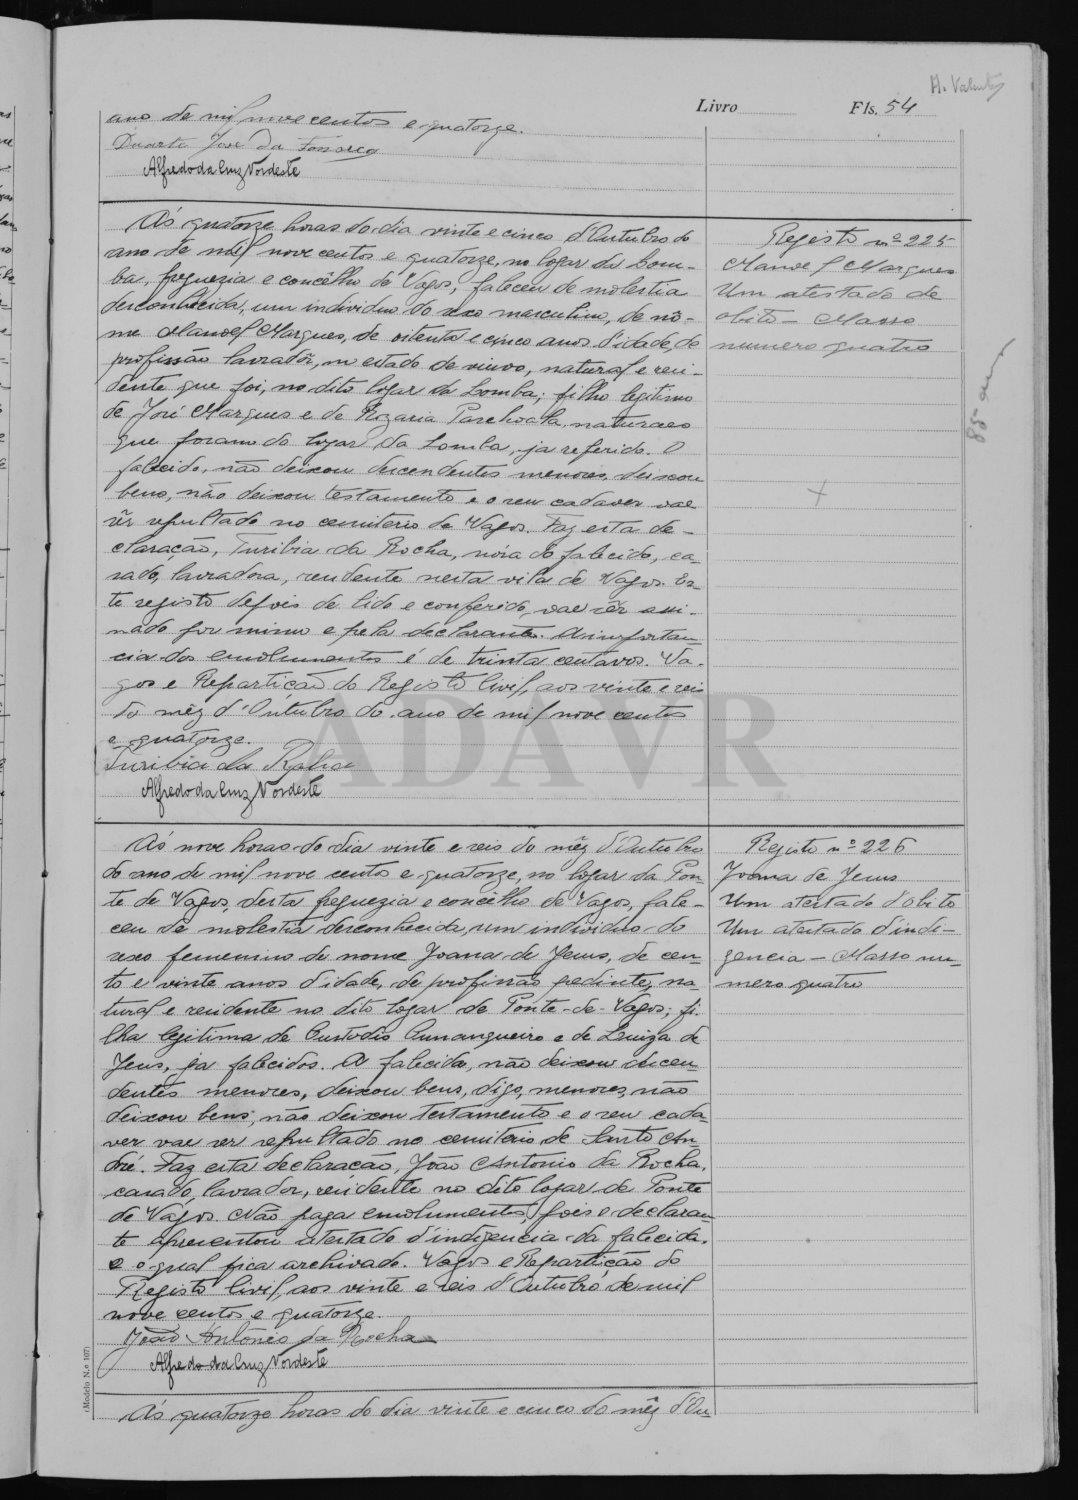 A. Valente
Livro Fls. 54
ano de mil nove centos e quatorze.
Duarte José da Fonseca
Alfredo da Cruz Nordeste
Ás quatorze horas do dia vinte e cinco d'Outubro do
ano de mil nove centos e quatorze, no logar da Lom-
ba, freguezia e concêlho de Vagos, faleceu de molestia
desconhecida, um individuo do sexo masculino, de nô-
me Manoel Marques, de oitenta e cinco anos d'idade, de
profissão lavradôr, no estado de viuvo, natural e resi-
dente que foi, no dito logar da Lomba; filho legitimo
de José Marques e de Rozaria Paschoala, naturaes
que foram do logar da Lomba, ja referido. O
falecido, não deixou descendentes menores, deixou
bens, não deixou testamento e o seu cadaver vae
sêr sepultado no cemiterio de Vagos. Faz esta de-
claração, Turibia da Rocha, nóra do falecido, ca-
sada, lavradora, residente nesta vila de Vagos. Es-
te registo depois de lido e conferido, vae sêr assi-
nado por mim e pela declarante. A importan-
cia dos emolumentos é de trinta centavos. Va-
gos e Repartição do Registo Civil, aos vinte e seis
do mêz d'Outubro do ano de mil nove centos
e quatorze.
Turibia da Rocha
Alfredo da Cruz Nordeste
Registo nº 225
Manoel Marques
Um atestado de
obito - Masso
numero quatro
85 anos
ADAVR
Ás nove horas do dia vinte e seis do mêz d'Outubro
do ano de mil nove cento e quatorze, no logar da Pon-
te de Vagos, desta freguezia e concêlho de Vagos, fale-
ceu de molestia desconhecida, um individuo do
sexo femenino de nome Joana de Jesus, de cen-
to e vinte anos d'idade, de profissão pedinte, na-
tural e residente no dito logar de Ponte-de-Vagos; fi-
lha legitima de Custodio e de Luiza de
Jesus, ja falecidos. A falecida, não deixou descen-
dentes menores, deixou bens, digo, menores, não
deixou bens, não deixou testamento e o seu cada-
ver vae ser sepultado no cemiterio de Santo An-
dré. Faz esta declaração, João Antonio da Rocha,
casado, lavrador, residente no dito logar de Ponte
de Vagos. Não paga emolumentos, pois o declaran-
te apresentou atestado d'indigencia da falecida,
e o qual fica archivado. Vagos e Repartição do
Registo Civil, aos vinte e seis d'Outubro de mil
nove centos e quatorze.
João Antonio da Rocha
Alfredo da Cruz Nordeste
Registo nº 226
Joana de Jesus
Um atestado d'obito
Um atestado d'indi-
gencia - Masso nu-
mero quatro
(Modelo N.º 107)
Ás quatorze horas do dia vinte e cinco do mêz d'Ou-